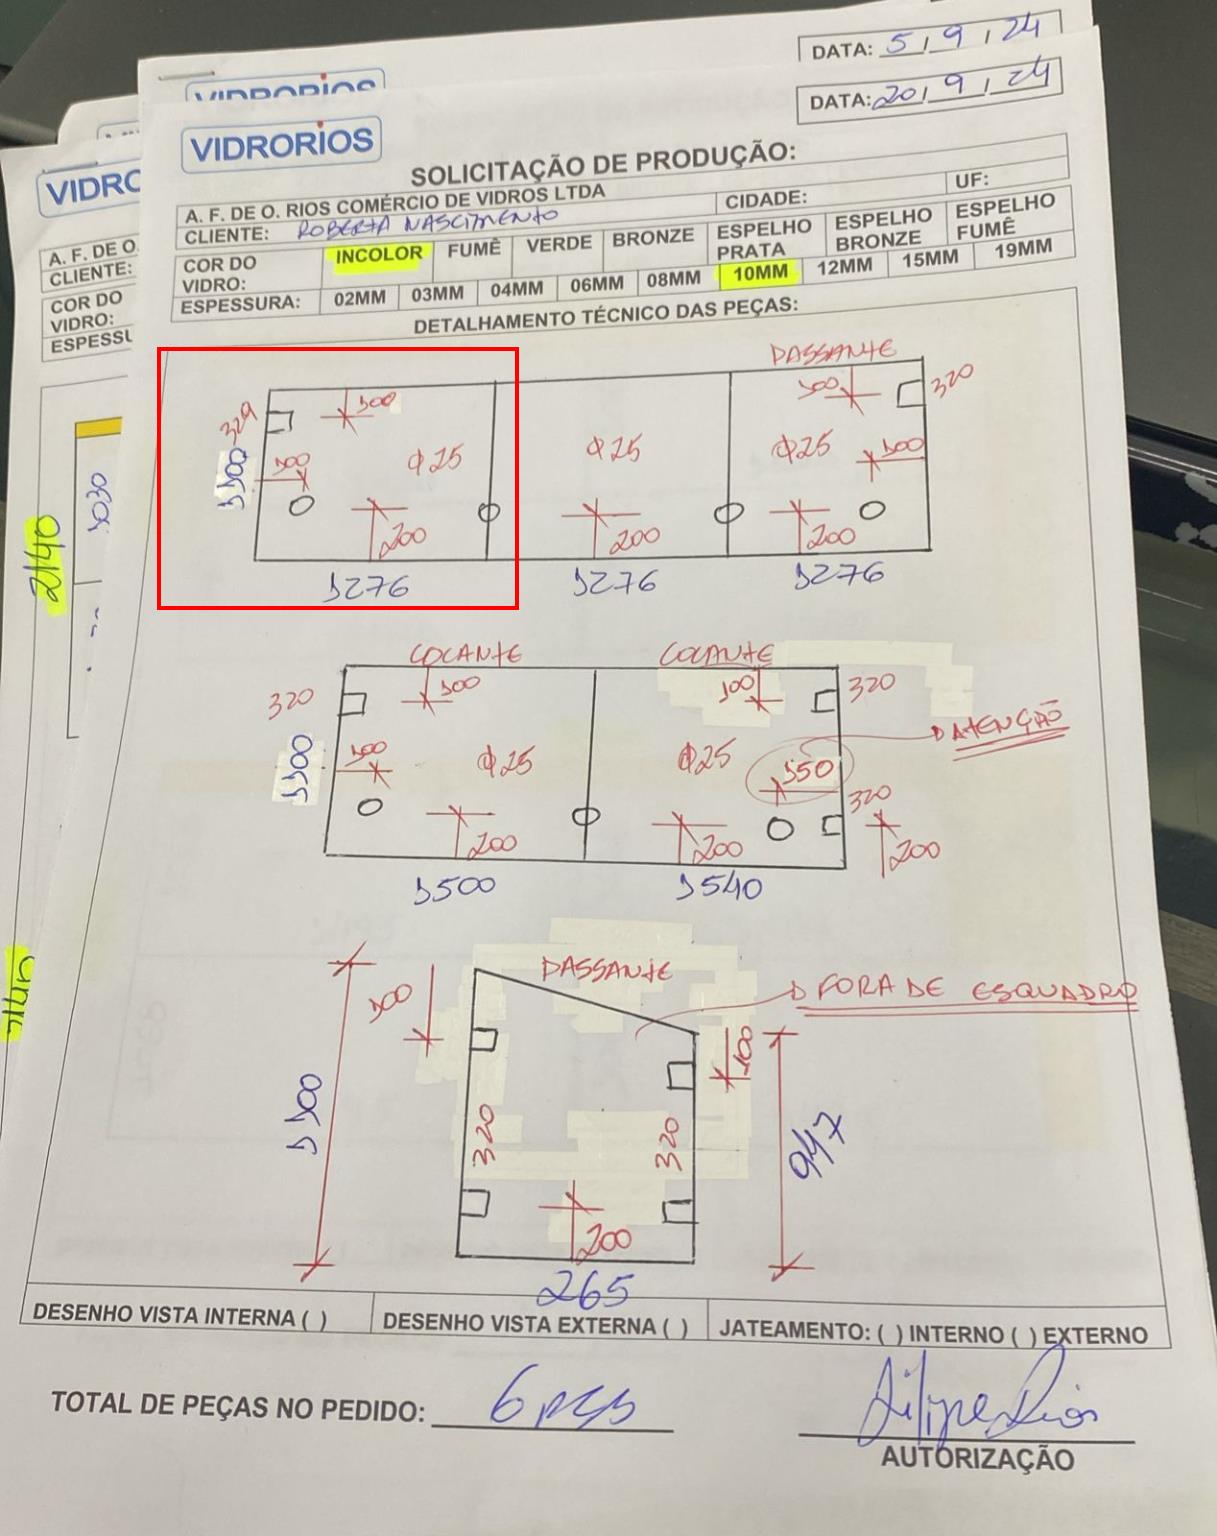 DATA: 5/9/24
VIDRORIOS
DATA: 20/9/24
VIDRORIOS
SOLICITAÇÃO DE PRODUÇÃO:
A. F. DE O. RIOS COMÉRCIO DE VIDROS LTDA
CIDADE:
UF:
CLIENTE: ROBERTA NASCIMENTO
COR DO VIDRO:
INCOLOR
FUMÊ
VERDE
BRONZE
ESPELHO PRATA
ESPELHO BRONZE
ESPELHO FUMÊ
ESPESSURA:
02MM
03MM
04MM
06MM
08MM
10MM
12MM
15MM
19MM
DETALHAMENTO TÉCNICO DAS PEÇAS:
PASSANTE
329
100
100
320
1100
100
Φ25
Φ25
Φ25
100
200
200
200
1276
1276
1276
COLANTE
COLANTE
320
100
100
320
ATENÇÃO
1100
100
Φ25
Φ25
150
320
200
200
200
1500
1540
PASSANTE
FORA DE ESQUADRO
100
100
1100
320
320
947
200
265
DESENHO VISTA INTERNA ( )
DESENHO VISTA EXTERNA ( )
JATEAMENTO: ( ) INTERNO ( ) EXTERNO
TOTAL DE PEÇAS NO PEDIDO: 6 pçs
Filipe Rios
AUTORIZAÇÃO
VIDRO
A. F. DE O.
CLIENTE:
COR DO
VIDRO:
ESPESSU
1030
2140